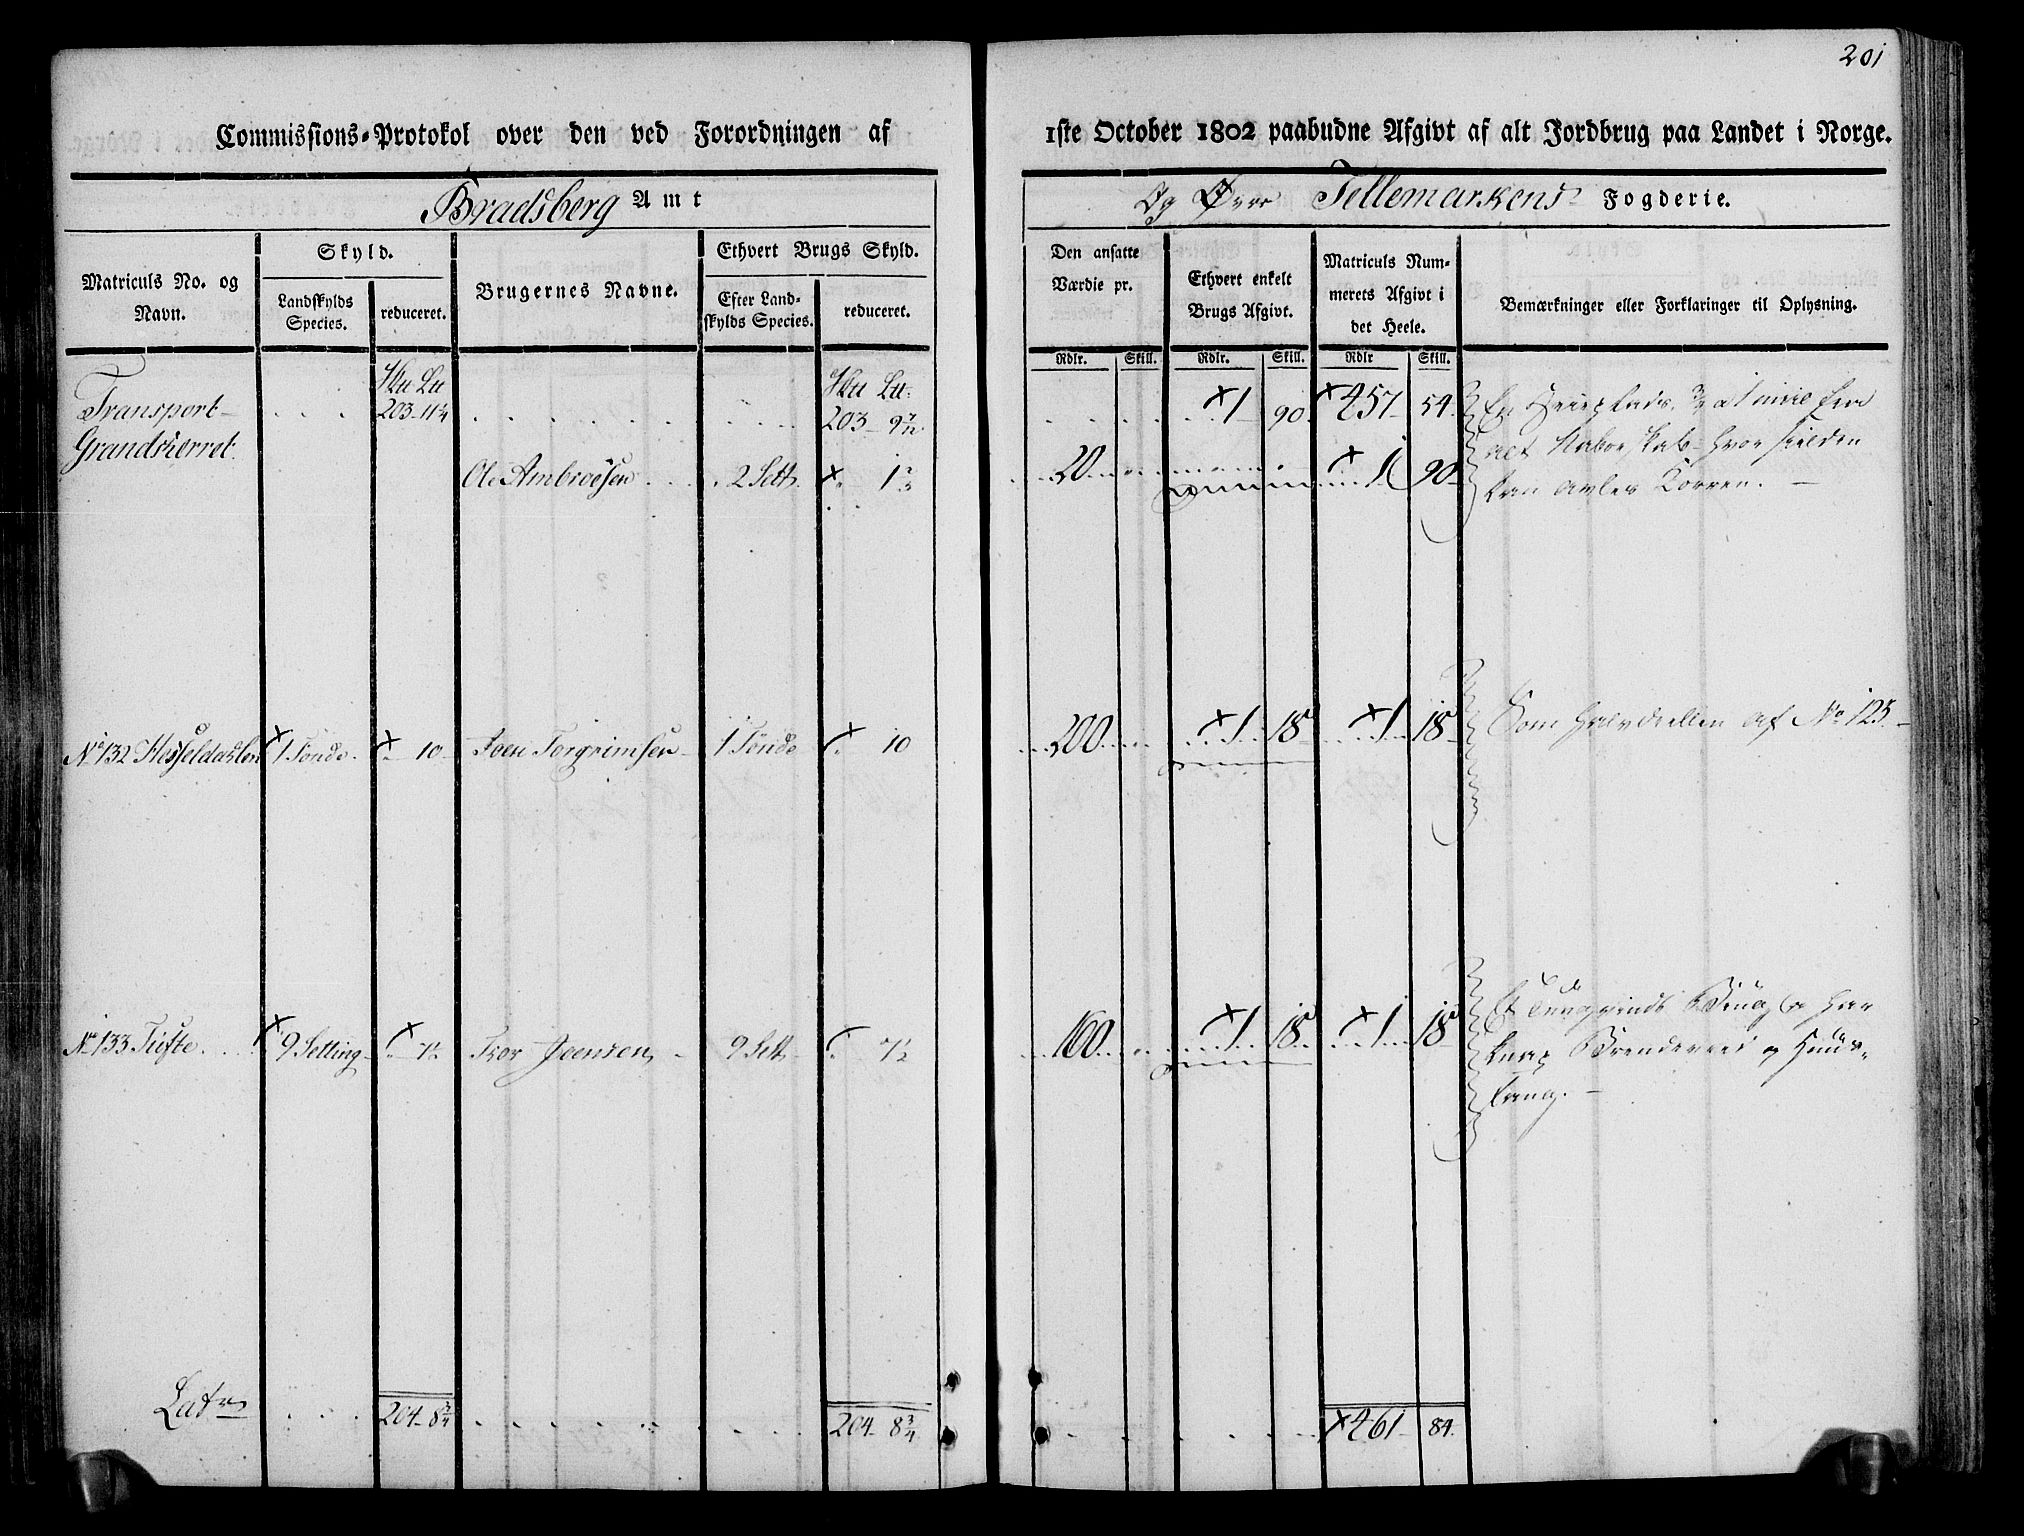 201
Commissions-Protokol over den ved Forordningen af 1ste October 1802 paabudne Afgivt af alt Jordbrug paa Landet i Norge.
Bradsberg Amt
Og Øvre Tellemarkens Fogderie.
Matriculs No. og Navn.
Skyld.
Landskylds Species.
reduceret.
Brugernes Navne.
Ethvert Brugs Skyld.
Efter Landskylds Species.
reduceret.
Den ansatte Værdie pr.
Ethvert enkelt Brugs Afgivt.
Matriculs Nummerets Afgivt i det Heele.
Bemærkninger eller Forklaringer til Oplysning.
Rdlr. Skill. Rdlr. Skill. Rdlr Skill.
Transport 203 11¼ 203 9 7/12 1 90 457 54
Grandskierret
Ole Ambroesen 2 Sett 1⅔ 20 1 90
avler Korren.
No 132 Hesseldahlen 1 Tønde 10 Joen Torgrimsen 1 Tønde 10 200 1 18 1 18 Som af No 125
No 133 Tufte 9 Setting 7½ Tror Joensen 9 Sett 7½ 160 1 18 1 18
Latus 204 8¾ 204 8¾ 461 84